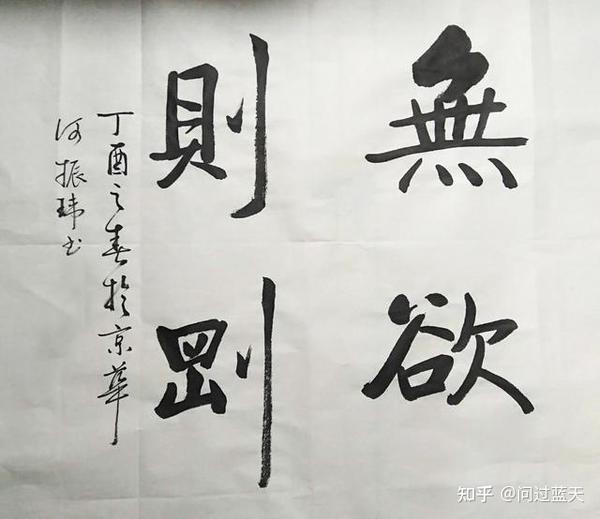 無欲
則剛
丁酉之春於京華
河振瑋书
知乎 @问过蓝天